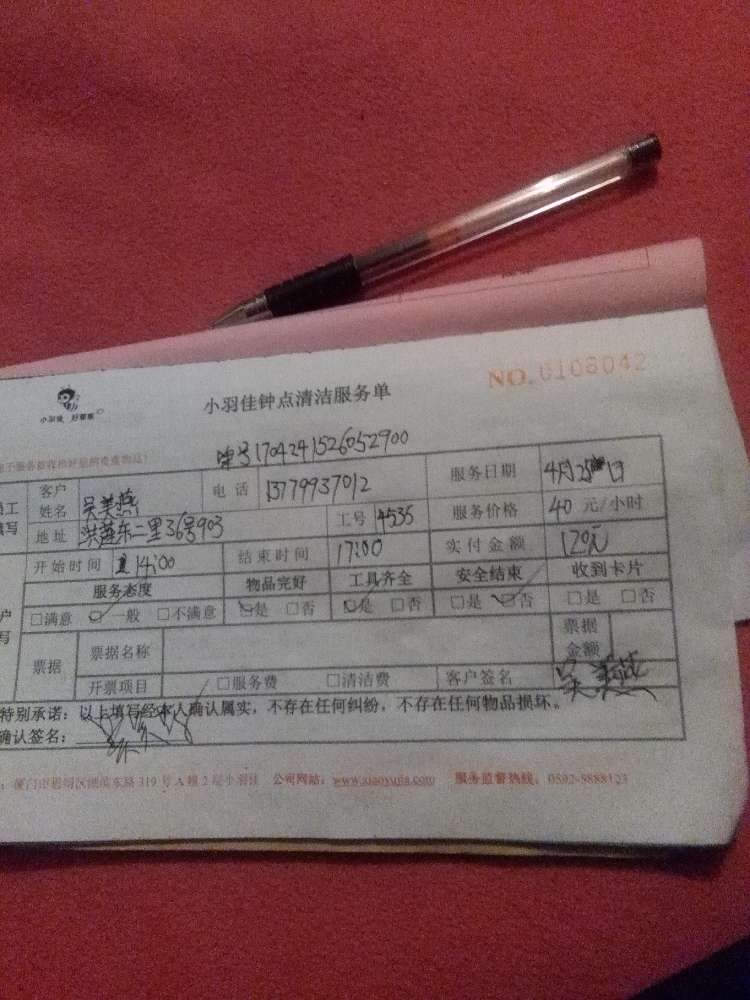 NO.0108042
小羽佳 好帮家
小羽佳钟点清洁服务单
单号1704241526052900
客户姓名 吴美燕 电话 13779937012 服务日期 4月25日
地址 洪莲东二里36号903 工号 4535 服务价格 40 元/小时
开始时间 14:00 结束时间 17:00 实付金额 120元
服务态度 物品完好 工具齐全 安全结束 收到卡片
□满意 □一般 □不满意 □是 □否 □是 □否 □是 □否 □是 □否
票据 票据名称 票据金额
开票项目 □服务费 □清洁费 客户签名 吴美燕
特别承诺：以上填写经本人确认属实，不存在任何纠纷，不存在任何物品损坏。
确认签名：
厦门市思明区湖滨东路319号A幢2层小羽佳 公司网站：www.xiaoyujia.com 服务监督热线：0592-5888123